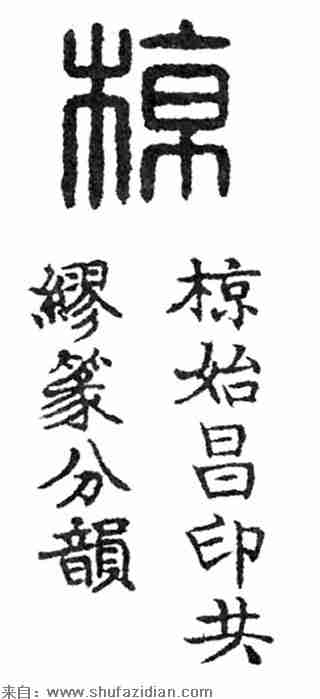 椋
椋始昌印共
繆篆分韻
来自：www.shufazidian.com